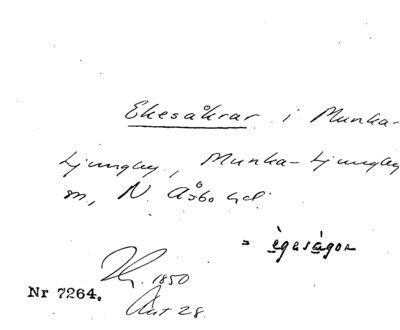 Ekesåkrar i Munka-
Ljungby, Munka-Ljungby
sn, N. Åsbo hd.
= ègaságor
1850
Nr 7264.
Ant 28